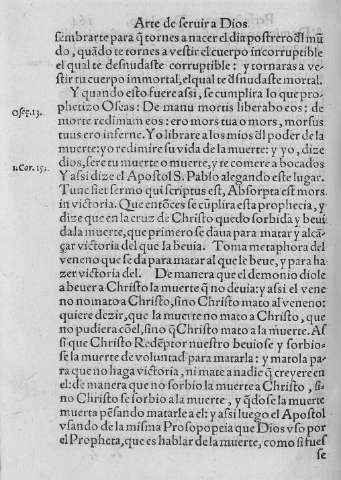 Arte de seruir a Dios
sembrarte para q̃ tornes a nacer el dia postrero d̃l mũ
do, quãdo te tornes a vestir el cuerpo incorruptible
el qual te desnudaste corruptible : y tornaras a ve-
stir tu cuerpo immortal, el qual te d̃snudaste mortal.
Y quando esto fuere assi, se cumplira lo que pro-
phetizo Oseas: De manu mortis liberabo eos: de
Oseę.13.
morte redimam eos: ero mors tua o mors, morsus
tuus ero inferne. Yo librare a los mios d̃l poder de la
muerte: yo redimire su vida de la muerte: y yo, dize
dios, sere tu muerte o muerte, y te comere a bocados
1.Cor.15.
Y assi dize el Apostol S. Pablo alegando este lugar.
Tunc fiet sermo qui scriptus est, Absorpta est mors
in victoria. Que entõces se cũplira esta prophecia, y
dize que en la cruz de Christo quedo sorbida y beui
da la muerte, que primero se daua para matar y alcã
çar victoria del que la beuia. Toma metaphora del
veneno que se da para matar al que le beue, y para ha
zer victoria del. De manera que el demonio diole
a beuer a Christo la muerte q̃ no deuia: y assi el vene
no no mato a Christo, sino Christo mato al veneno:
quiere dezir, que la muerte no mato a Christo, que
no pudiera cõel, sino q̃ Christo mato a la muerte. As
si que Christo Redẽptor nuestro beuiose y sorbio-
se la muerte de voluntad para matarla: y matola pa
ra que no haga victoria, ni mate a nadie q̃ creyere en
el: de manera que no sorbio la muerte a Christo, si-
no Christo se sorbio a la muerte, y q̃dose la muerte
muerta pẽsando matarle a el: y assi luego el Apostol
vsando de la misma Prosopopeia que Dios vso por
el Propheta, que es hablar de la muerte, como si fues
se